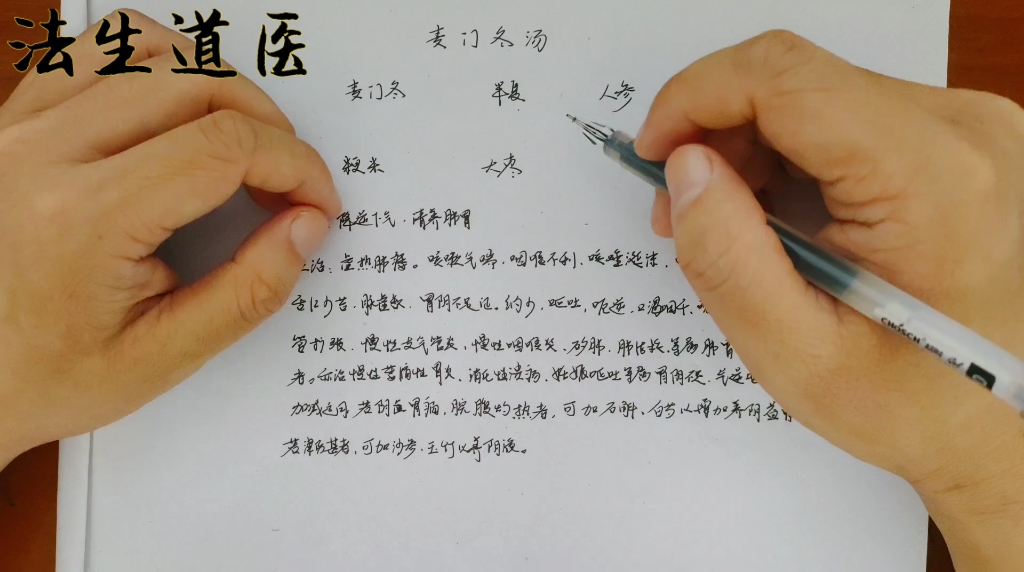 法生道医
麦门冬汤
麦门冬 半夏 人参
粳米 大枣
降逆下气·清养肺胃
治:虚热肺痿。咳嗽气喘·咽喉不利·咳唾涎沫,
舌红少苔·脉虚数·胃阴不足证。纳少,呕吐,呃逆,口渴咽干,
管扩张·慢性支气管炎,慢性咽喉炎·矽肺·肺结核等属肺胃
者。亦治慢性萎缩性胃炎,消化性溃疡,妊娠呕吐等属胃阴不足,气逆
加减运用 若阴虚胃痛,脘腹灼热者,可加石斛、白芍以增加养阴益胃
若津伤甚者,可加沙参、玉竹以养阴液。